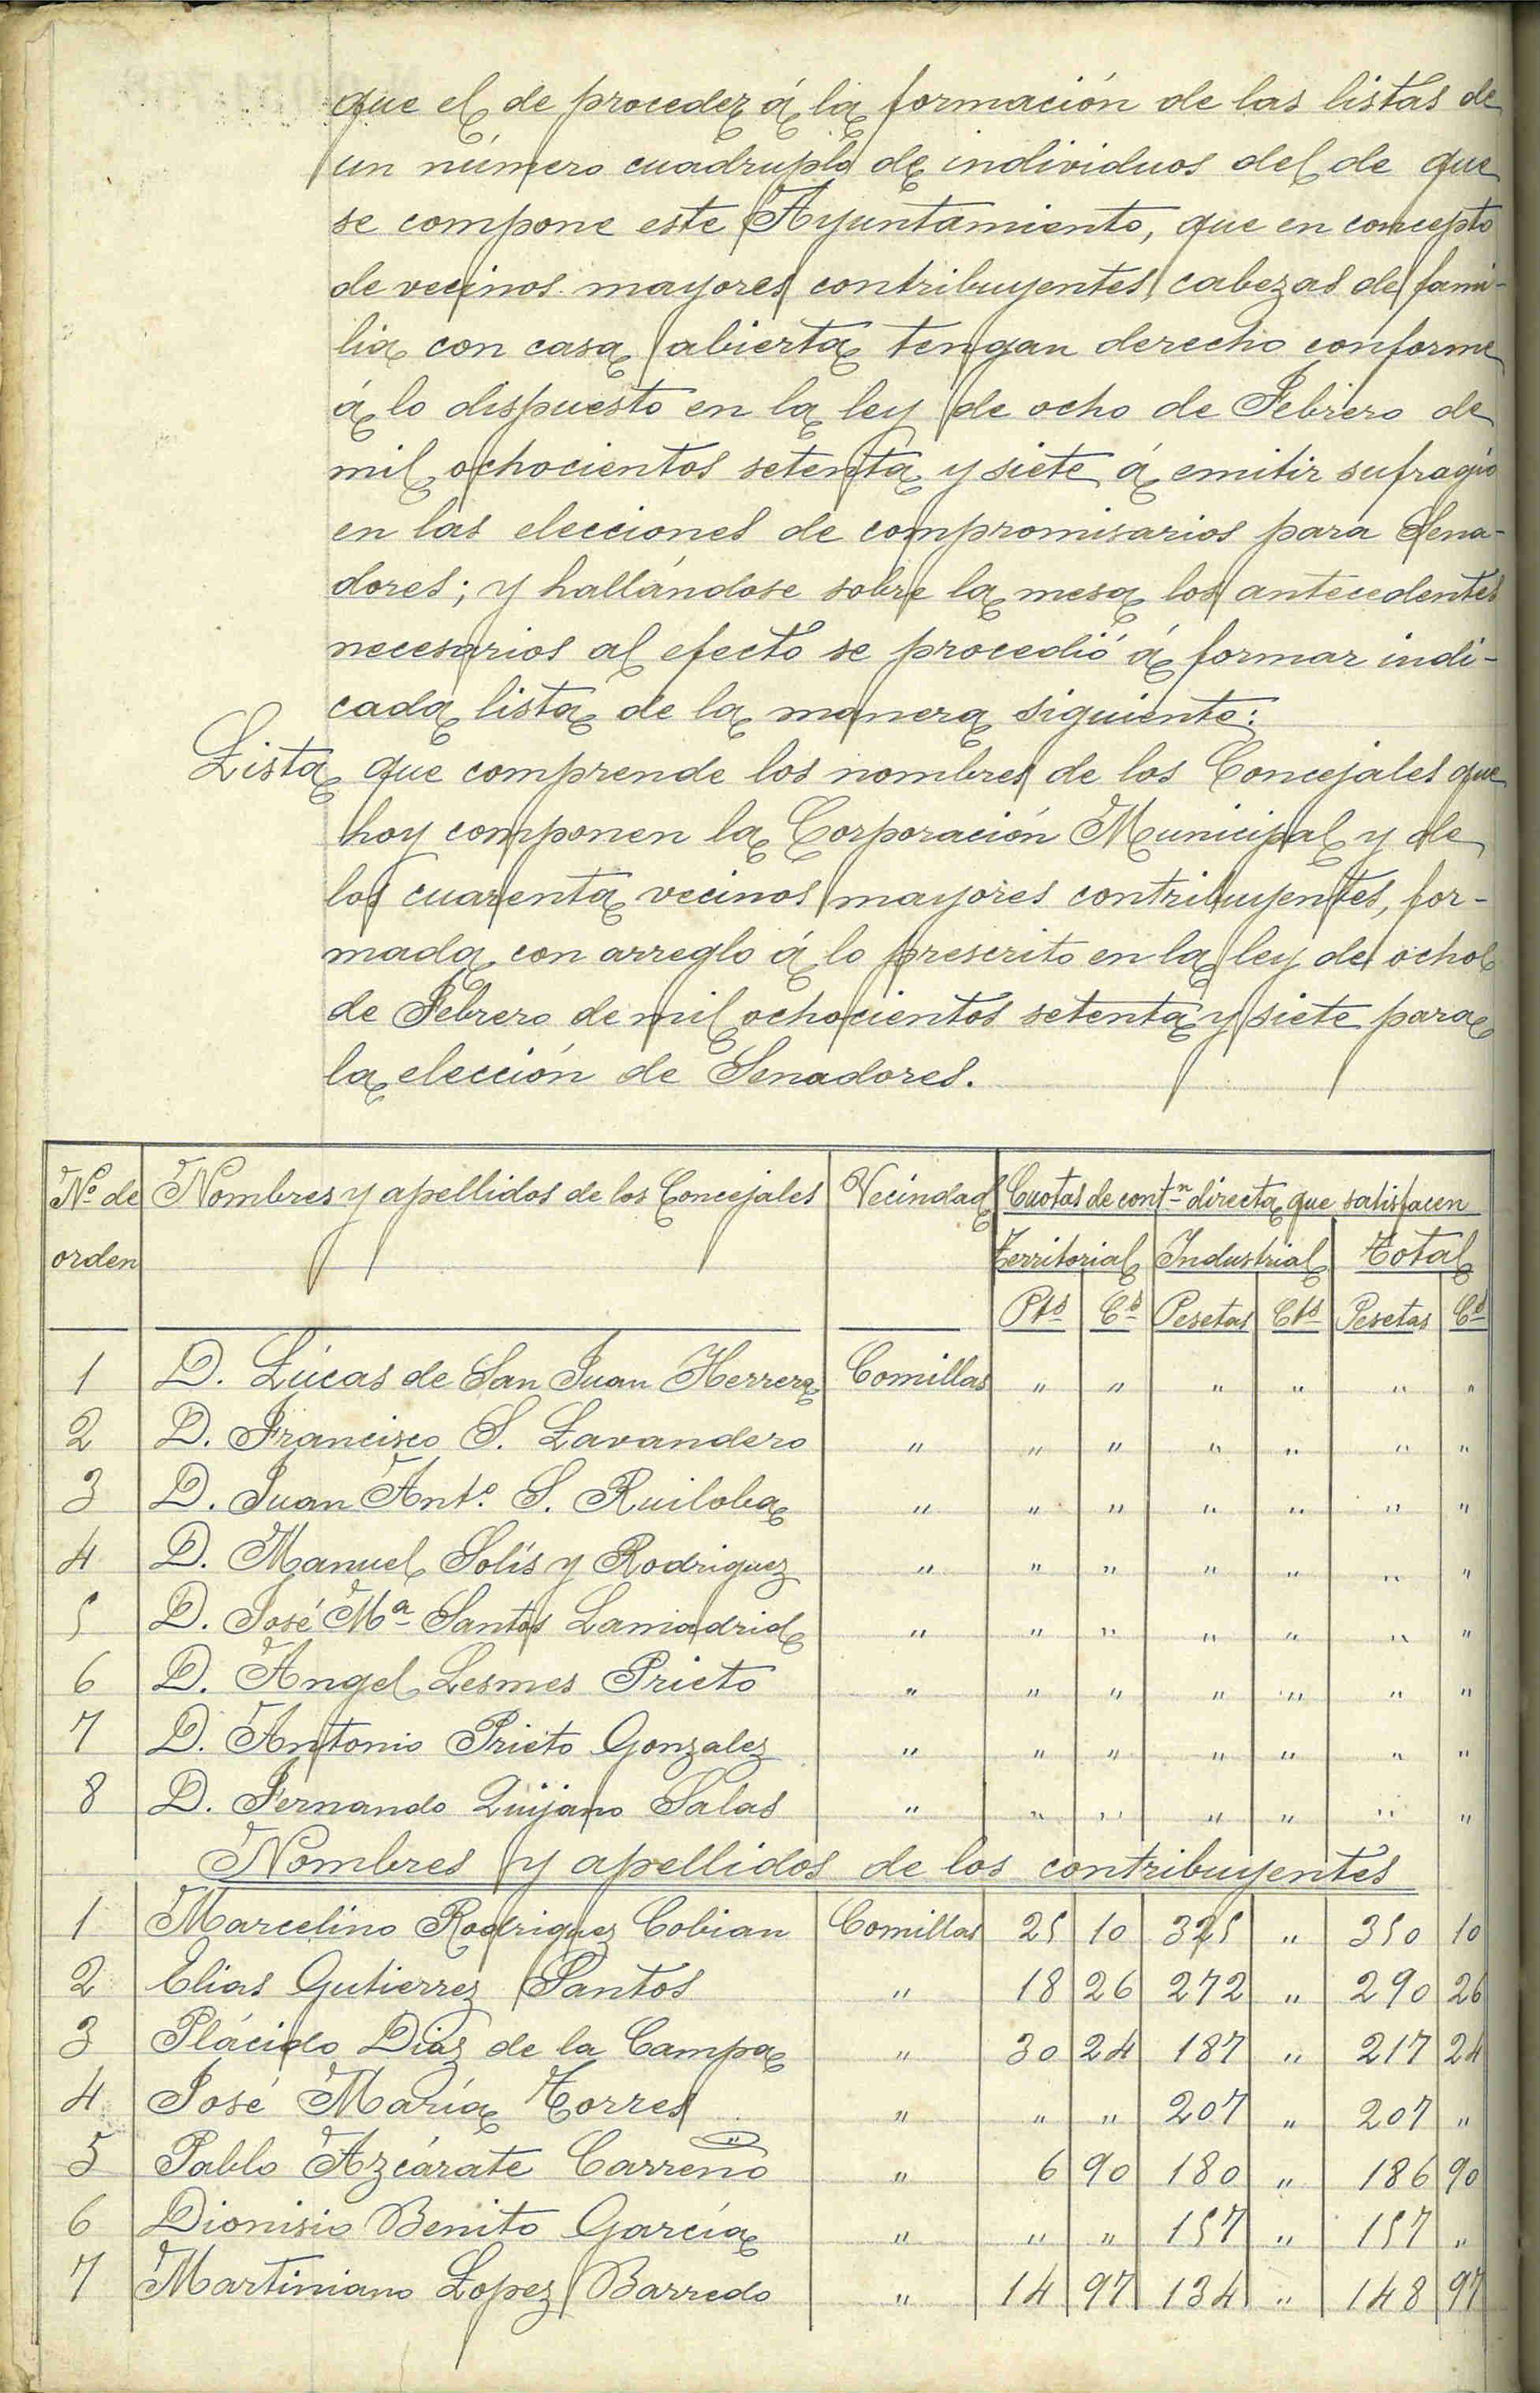 que el de proceder á la formación de las listas de
un número cuadruplo de individuos del de que
se compone este Ayuntamiento, que en concepto
de vecinos mayores contribuyentes, cabezas de fami-
lia con casa abierta tengan derecho conforme
á lo dispuesto en la ley de ocho de Febrero de
mil ochocientos setenta y siete á emitir sufragio
en las elecciones de compromisarios para Sena-
dores; y hallándose sobre la mesa los antecedentes
necesarios al efecto se procedió á formar indi-
cada lista de la manera siguiente:
Lista que comprende los nombres de los Concejales que
hoy componen la Corporación Municipal y de
los cuarenta vecinos mayores contribuyentes, for-
mada con arreglo á lo prescrito en la ley de ocho
de Febrero de mil ochocientos setenta y siete para
la elección de Senadores.
Nº de orden Nombres y apellidos de los Concejales Vecindad Cuotas de contn directa que satisfacen
Territorial Industrial Total
Pts Cs Pesetas Cts Pesetas Cs
1 D. Lúcas de San Juan Herrera Comillas " " " " " "
2 D. Francisco S. Lavandero " " " " " " "
3 D. Juan Anto. S. Ruiloba " " " " " " "
4 D. Manuel Solís y Rodriguez " " " " " " "
5 D. José Ma Santos Lamadrid " " " " " " "
6 D. Angel Lesmes Prieto " " " " " " "
7 D. Antonio Prieto Gonzalez " " " " " " "
8 D. Fernando Quijano Salas " " " " " " "
Nombres y apellidos de los contribuyentes
1 Marcelino Rodriguez Cobian Comillas 25 10 325 " 350 10
2 Elias Gutierrez Santos " 18 26 272 " 290 26
3 Plácido Diaz de la Campa " 30 24 187 " 217 24
4 José María Torres " " " 207 " 207 "
5 Pablo Azcárate Carreño " 6 90 180 " 186 90
6 Dionisio Benito García " " " 157 " 157 "
7 Martiniano Lopez Barredo " 14 97 134 " 148 97